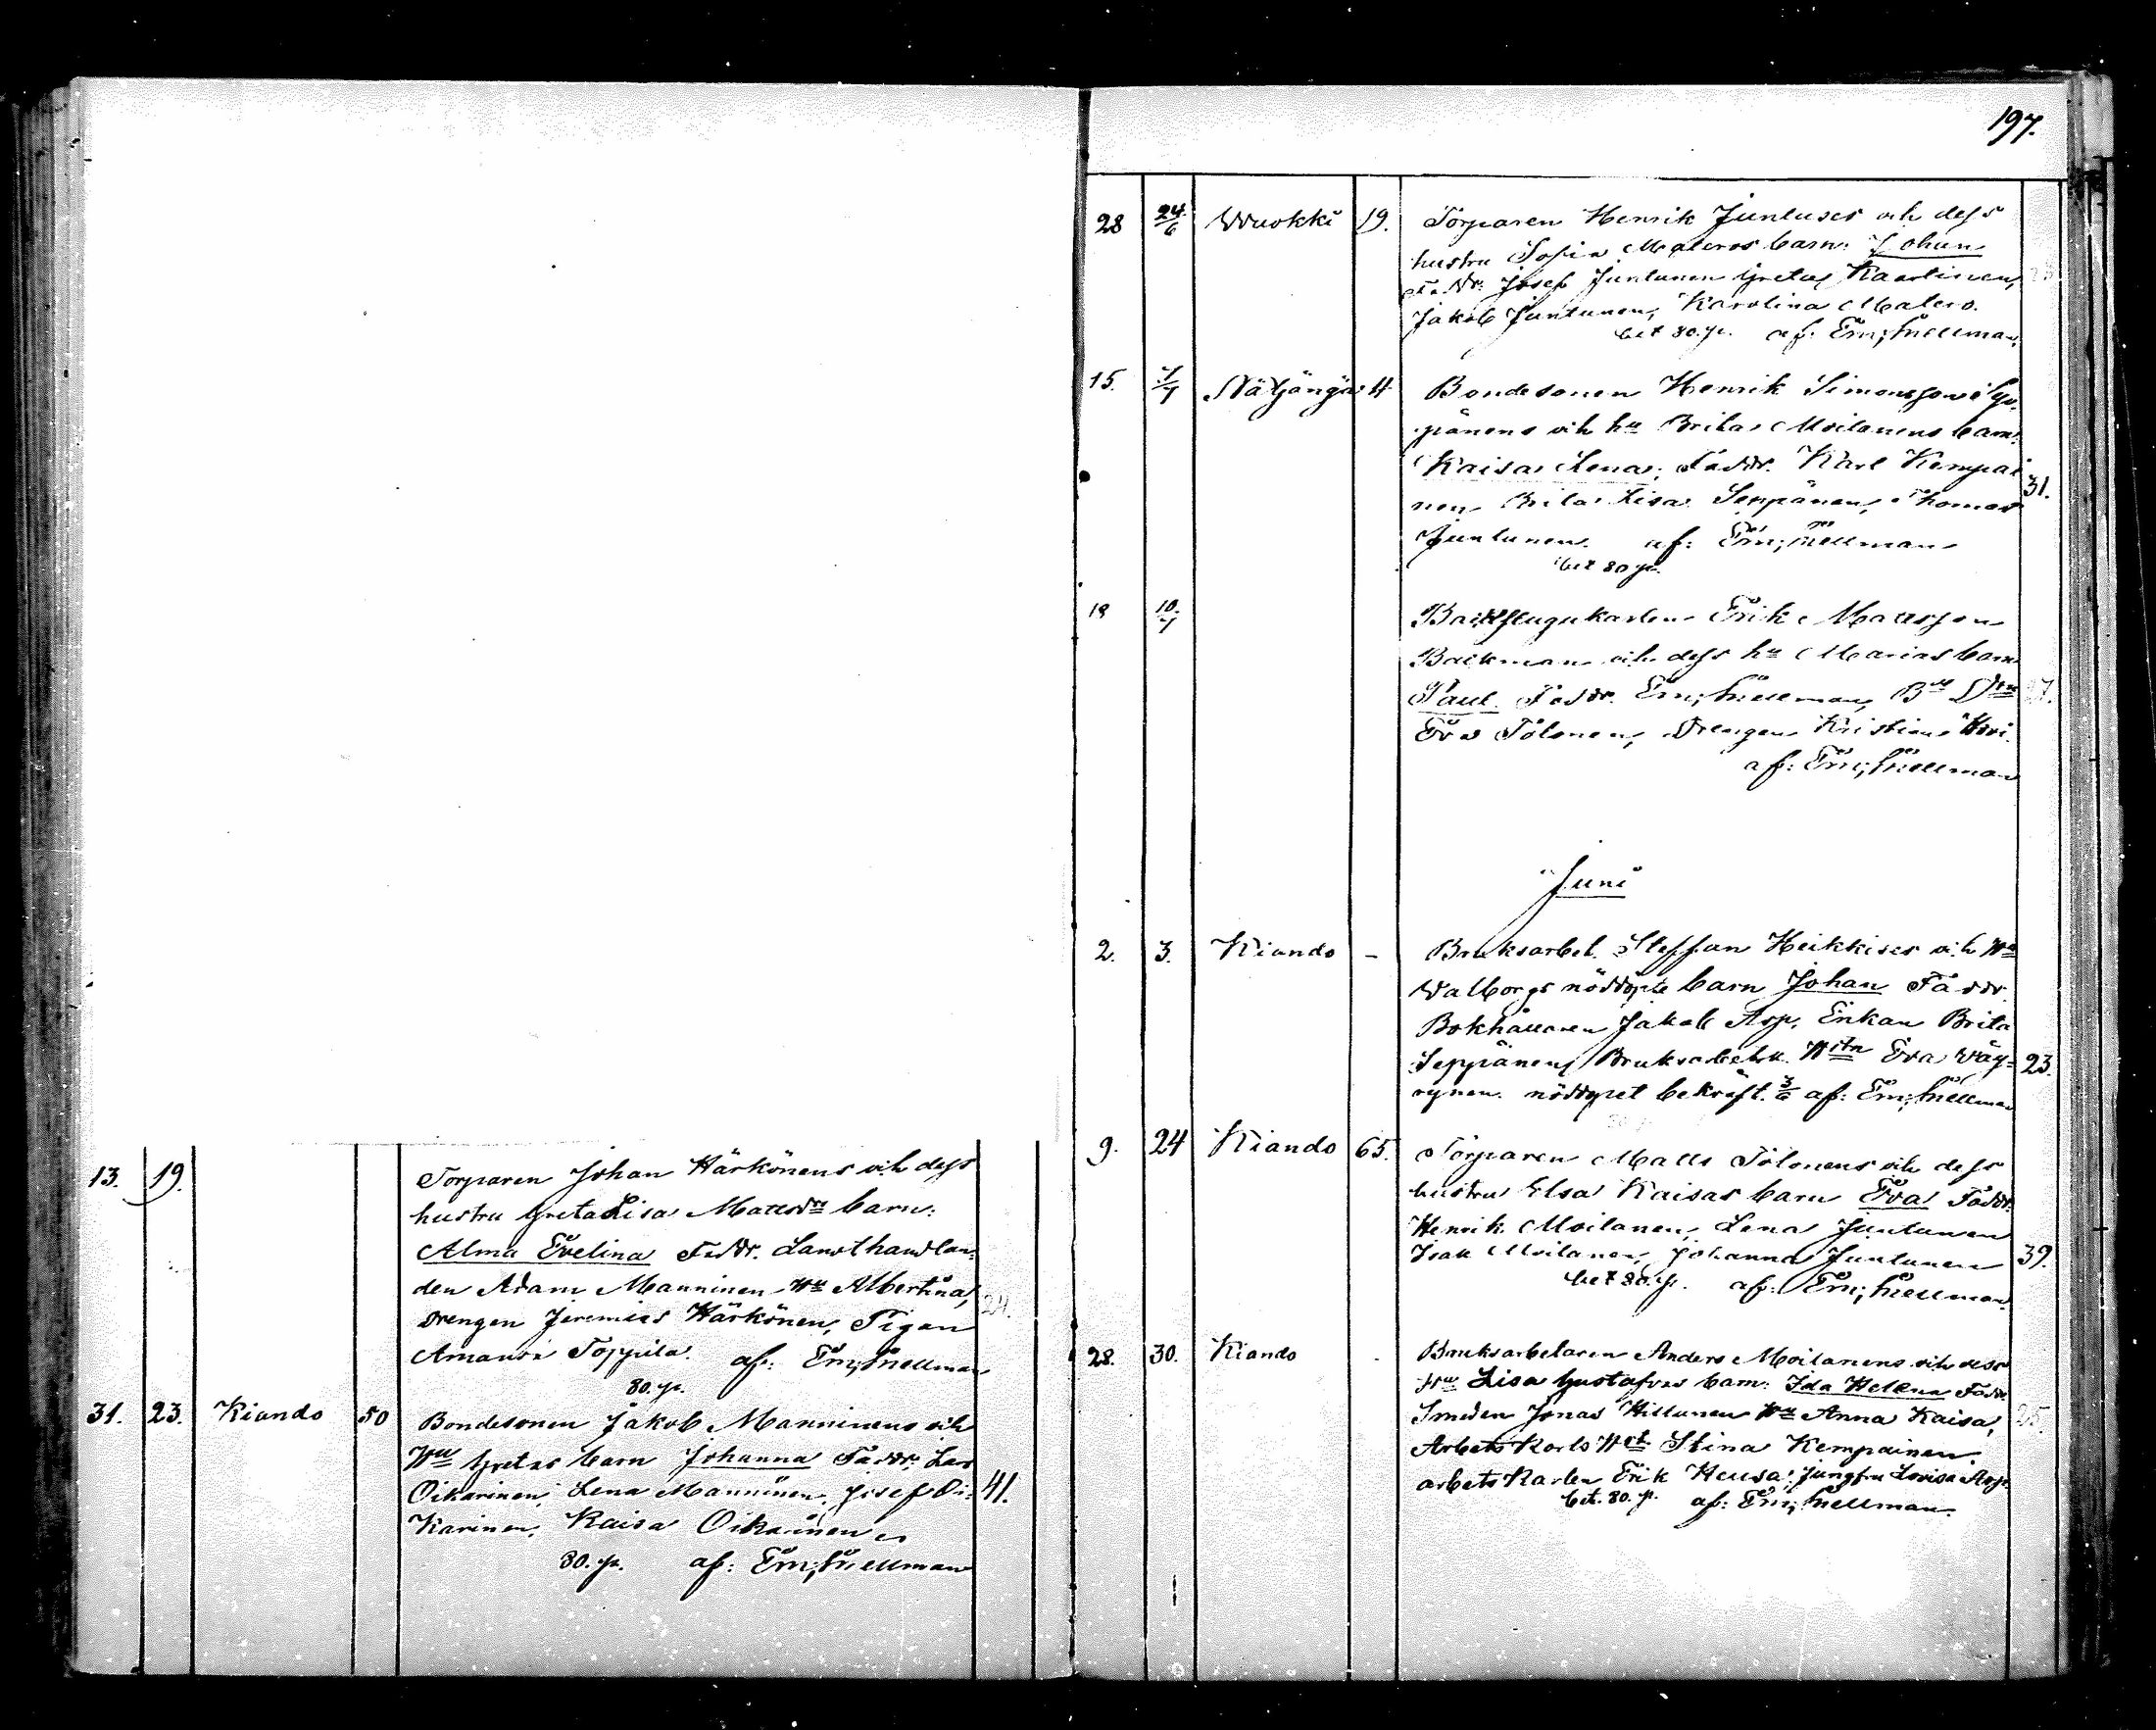 13. 19. Torparen Johan Härkönens och dess
hustru Greta Lisa Mattsdr barn:
Alma Evelina Faddr. Landthandlan-
den Adam Manninen Hu Albertina,
Drengen Jeremias Härkönen, Pigan
Amanda Toppila. af: Em; Snellman
80. p.
31. 23. Kiando 50 Bondesonen Jakob Manninens och
Hu Gretas barn Johanna Faddr: Lars
Oikarinen, Lena Manninen, Josef Oi- 41.
karinen, Kaisa Oikarinen
80. p. af: Em; Snellman
197.
28 24/6 Wuokki 19. Torparen Henrik Juntuses och dess
hustru Sofia Materos barn: Johan
Faddr: Josef Juntunen Greta Kaartinen,
Jakob Juntunen, Karolina Matero.
bet 80. p. af: Em; Snellman.
15. 7/7 Näljängä 4 Bondesonen Henrik Simonsson Sep-
pänens och hu Britas Moilanens barn:
Kaisa Lena; Faddr. Karl Kempai- 31.
nen Brita Lisa Seppänen, Thomas
Juntunen. af: Em; Snellman
bet 80 p.
18 10/7 Erik Mattsson
Backman och dess hu Marias barn
Paul. Faddr. Em; Snellman,
Eva Tölonen, Drengen Kristian
af: Em; Snellman
Juni
2. 3. Kiando - Bruksarbet. Steffan Heikkises och Hu
Walborgs nöddöpte barn Johan Faddr.
Bokhållaren Jakob Asp, Enkan Brita
Seppänen, Bruksarbetar. Eva Wäy- 23.
rynen. nöddopet bekräft. 3/6 af: Em; Snellman
9. 24 Kiando 65. Torparen Matts Tölonens och dess
hustru Elsa Kaisas barn Eva Faddr.
Henrik Moilanen, Lena Juntunen
Isak Moilanen, Johanna Juntunen 39.
bet 80. p. af: Em; Snellman.
28. 30. Kiando Bruksarbetaren Anders Moilanens och dess
Hu Lisa Gustafvas barn: Ida Helena Faddr
Smeden Jonas Hiltunen Hu Anna Kaisa, 25.
Arbets Karls Stina Kempainen.
arbets Karlen Erik Keusa, Jungfru Lovisa Asp.
bet. 80. p. af: Em; Snellman.